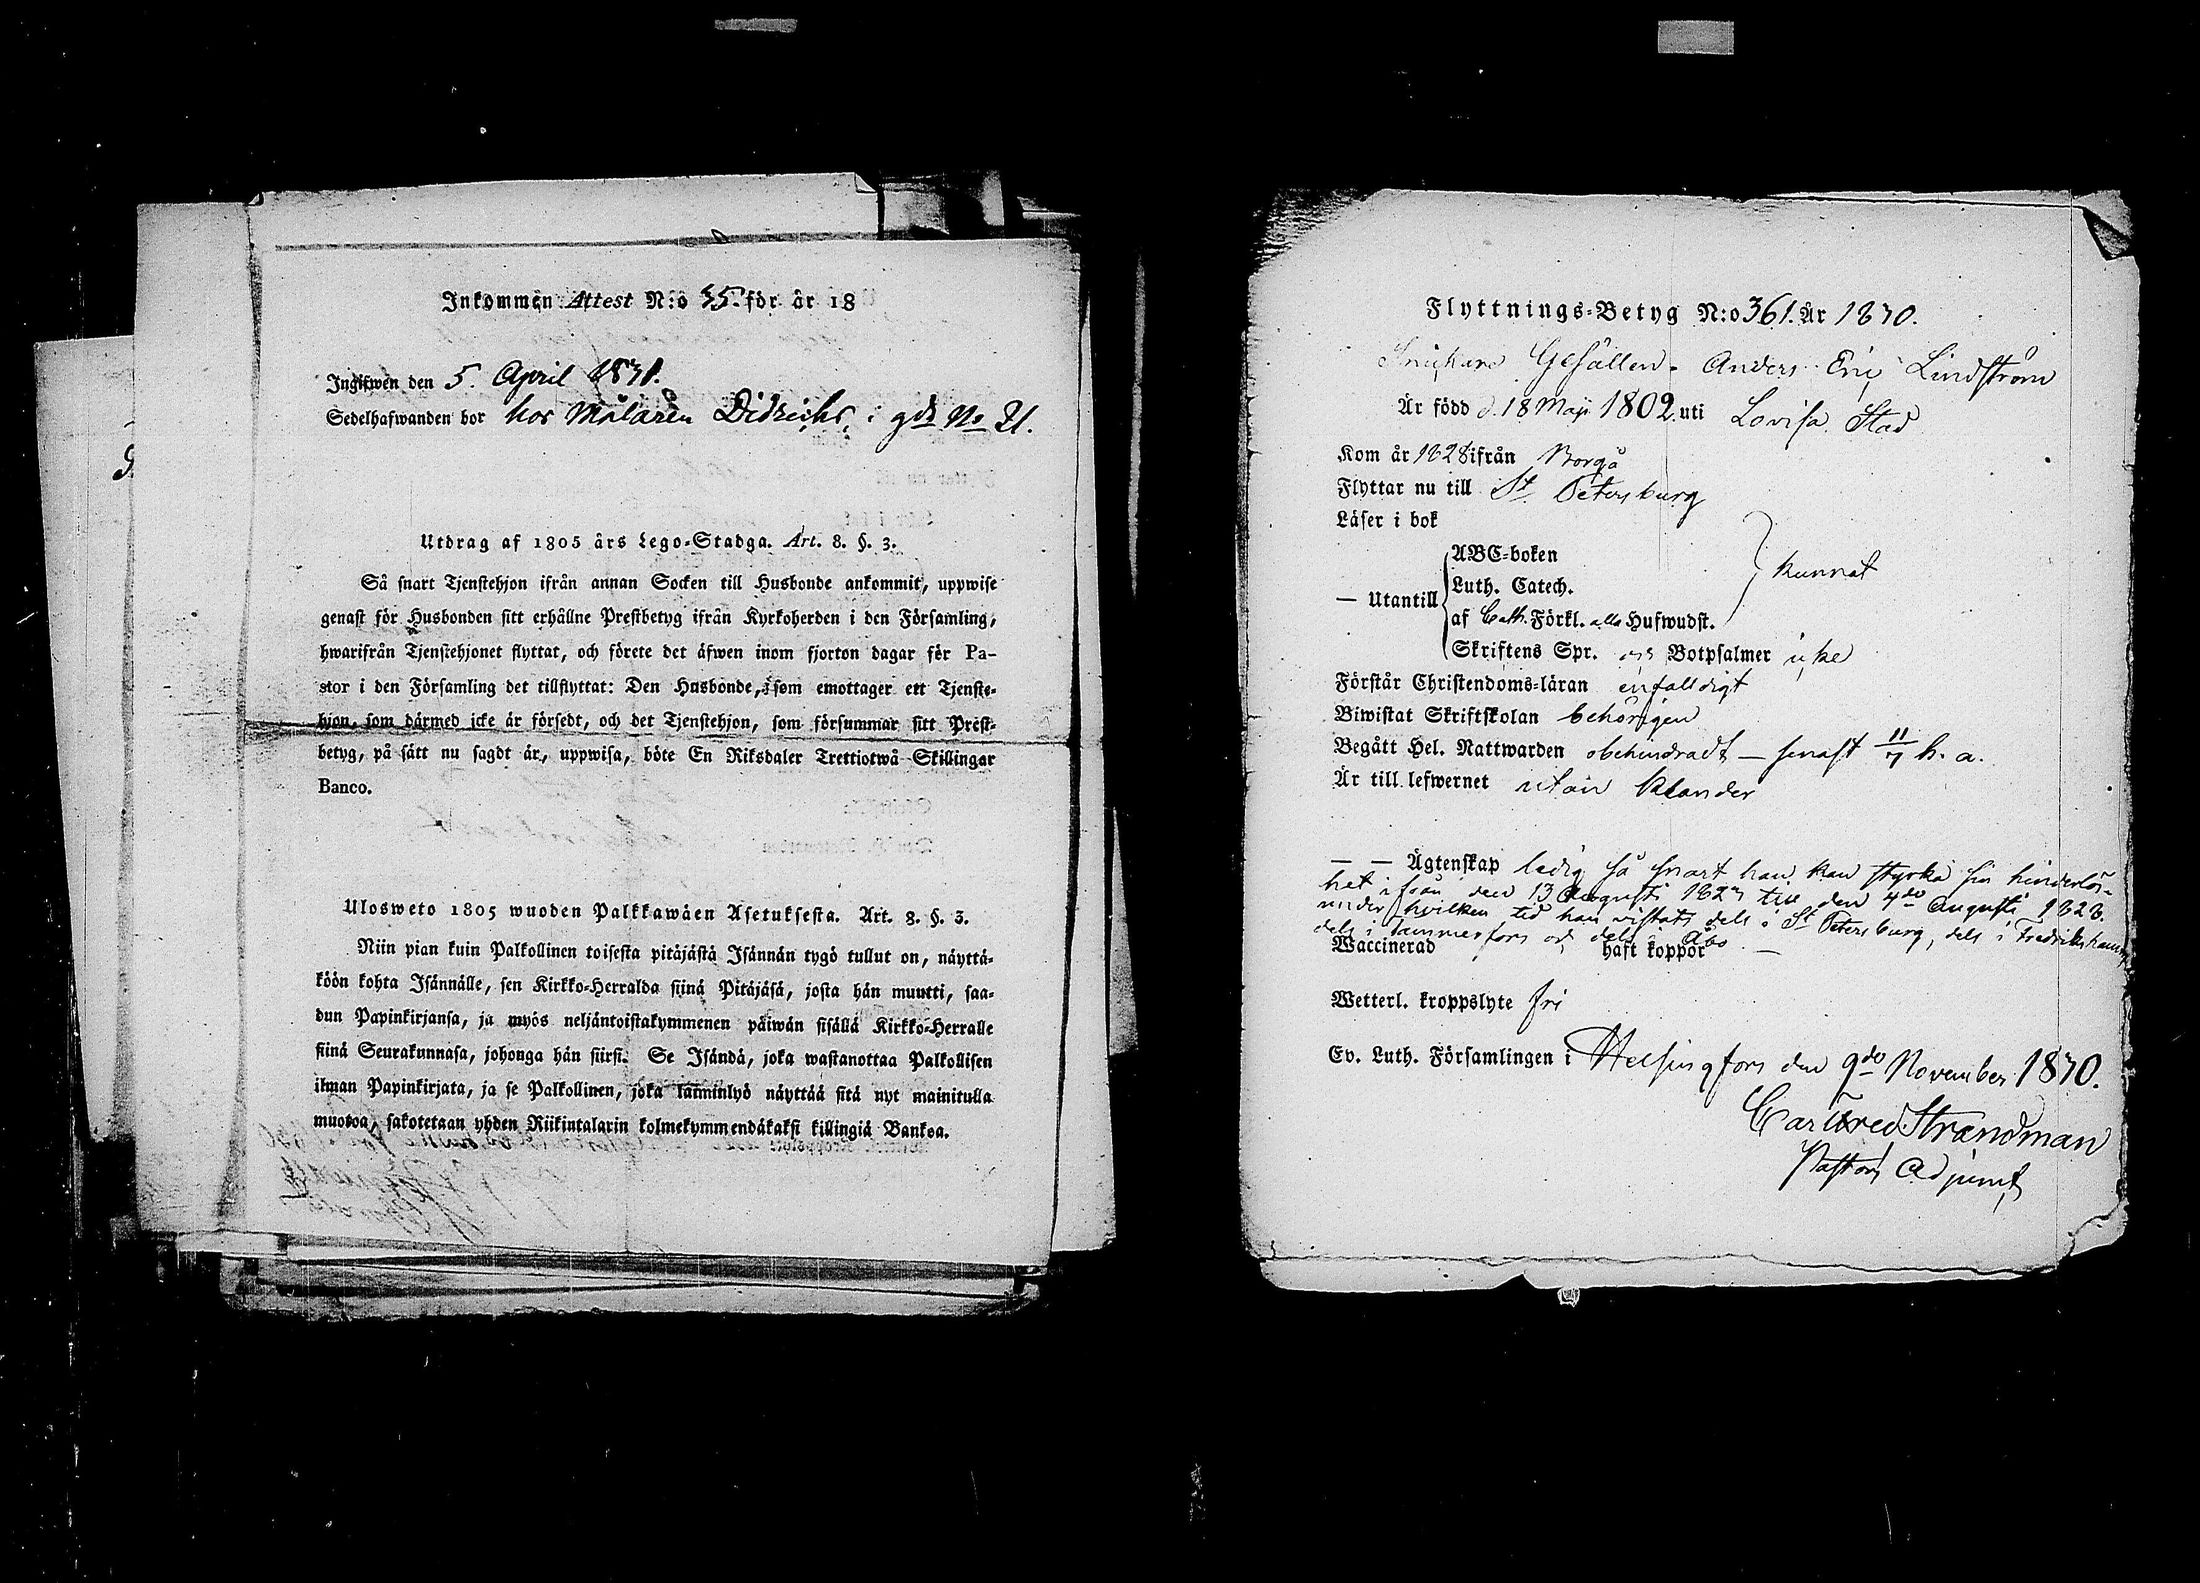 Inkommen Attest N:o 55. för år 18
Ingifwen den 5. April 1831.
Sedelhafwanden bor hos Målaren Didrichs, i gdn No 21.
Utdrag af 1805 års Lego-Stadga. Art. 8. §. 3.
Så snart Tjenstehjon ifrån annan Socken till Husbonde ankommit, uppwise
genast för Husbonden sitt erhållne Prestbetyg ifrån Kyrkoherden i den Församling,
hwarifrån Tjenstehjonet flyttat, och förete det äfwen inom fjorton dagar för Pa-
stor i den Församling det tillflyttat: Den Husbonde, som emottager ett Tjenste-
hjon, som därmed icke är försedt, och det Tjenstehjon, som försummar sitt Prest-
betyg, på sätt nu sagdt är, uppwisa, böte En Riksdaler Trettiotwå Skillingar
Banco.
Ulosweto 1805 wuoden Palkkawäen Asetuksesta. Art. 8. §. 3.
Niin pian kuin Palkollinen toisesta pitäjästä Isännän tygö tullut on, näyttä-
köön kohta Isännälle, sen Kirkko-Herralda siinä Pitäjäsä, josta hän muutti, saa-
dun Papinkirjansa, ja myös neljäntoistakymmenen päiwän sisällä Kirkko-Herralle
siinä Seurakunnasa, johonga hän siirsi. Se Isändä, joka wastanottaa Palkollisen
ilman Papinkirjata, ja se Palkollinen, joka laiminlyö näyttää sitä nyt mainitulla
muotoa, sakotetaan yhden Riikintalarin kolmekymmendäkaksi killingiä Bankoa.
Flyttnings-Betyg N:o 361. År 1830.
Snickare Gesällen Anders Eric Lindström
Är född d. 18 Maji 1802 uti Lovisa Stad
Kom år 1828 ifrån Borgå
Flyttar nu till St Petersburg
Läser i bok
ABC-boken
Luth. Catech. kunnat
— Utantill
af Cath. Förkl. alla Hufwudst.
Skriftens Spr. och Botpsalmer icke
Förstår Christendoms-läran enfalldigt
Biwistat Skriftskolan behörigen
Begått Hel. Nattwarden obehindradt — senast 11/7 h. a.
Är till lefwernet utan klander
— — Ägtenskap ledig så snart han kan styrka sin hinderlös-
het ifrån den 13 Augusti 1827 till den 4do Augusti 1828.
under hvilken tid han vistats dels i St Petersburg, dels i Fredrikshamn,
dels i Tammerfors och dels i Åbo —
Waccinerad haft koppor
Wetterl. kroppslyte fri
Ev. Luth. Församlingen i Helsingfors den 9de November 1830.
Carl Strandman
Pastors Adjunct